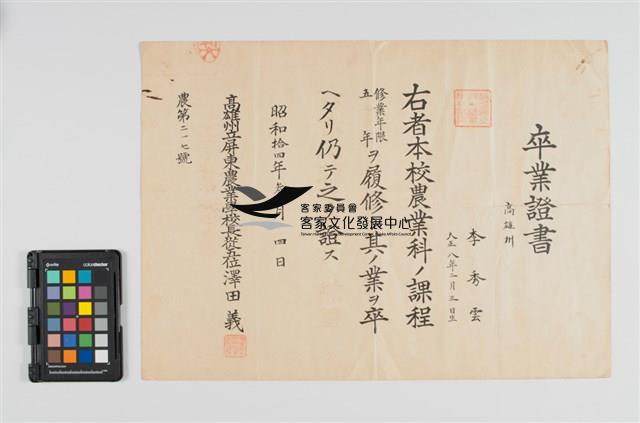 卒業證書
高雄州
李秀雲
大正八年二月三日生
右者本校農業科ノ課程
修業年限
五年ヲ履修シ其ノ業ヲ卒
ヘタリ仍テ之ヲ證ス
昭和拾四年參月四日
高雄州立屏東農業學校長從五位澤田義
農第二一七號
客家委員會
客家文化發展中心